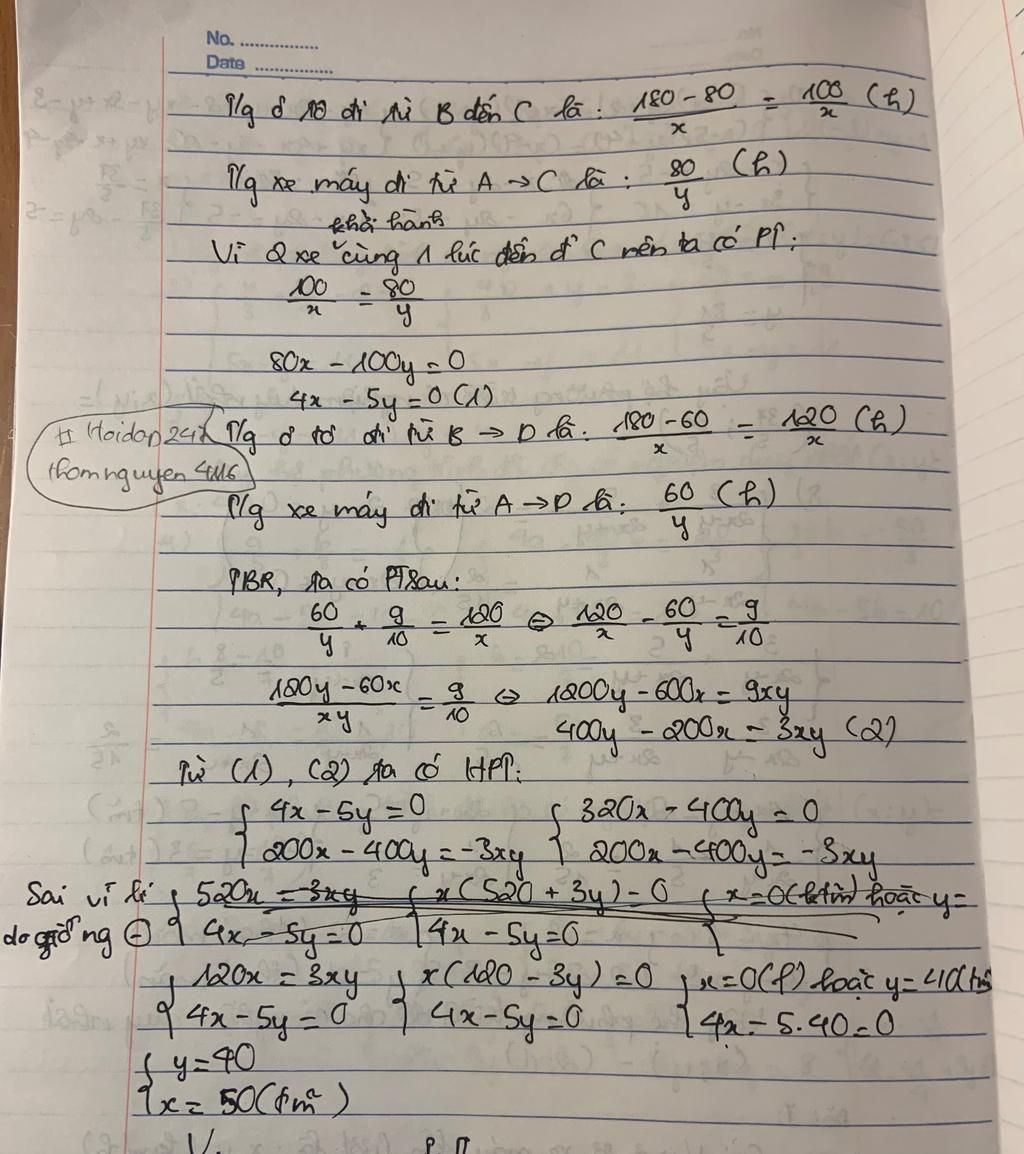 No. ................
Date ................
T/g ô tô đi từ B đến C là : (180 - 80)/x = 100/x (h)
T/g xe máy đi từ A → C là : 80/y (h)
khởi hành
Vì 2 xe ˇ cùng 1 lúc đến đ' C nên ta có PT :
100/x = 80/y
80x - 100y = 0
4x - 5y = 0 (1)
# Hoidap247
thomnguyen4116
T/g ô tô đi từ B → D là : (180 - 60)/x = 120/x (h)
T/g xe máy đi từ A → D là : 60/y (h)
TBR, ta có PT sau :
60/y + 9/10 = 120/x ⇔ 120/x - 60/y = 9/10
(120y - 60x)/xy = 9/10 ⇔ 1200y - 600x = 9xy
400y - 200x = 3xy (2)
Từ (1), (2) ta có HPT :
{ 4x - 5y = 0 { 320x - 400y = 0
{ 200x - 400y = -3xy { 200x - 400y = -3xy
Sai vì lí { 520x = 3xy { x(520 + 3y) = 0 { x = 0 (ktm) hoặc y =
do ⊖ { 4x - 5y = 0 { 4x - 5y = 0 {
{ 120x = 3xy { x(120 - 3y) = 0 { x = 0 (l) hoặc y = 40 (tm)
{ 4x - 5y = 0 { 4x - 5y = 0 { 4x - 5.40 = 0
{ y = 40
{ x = 50 (tm)